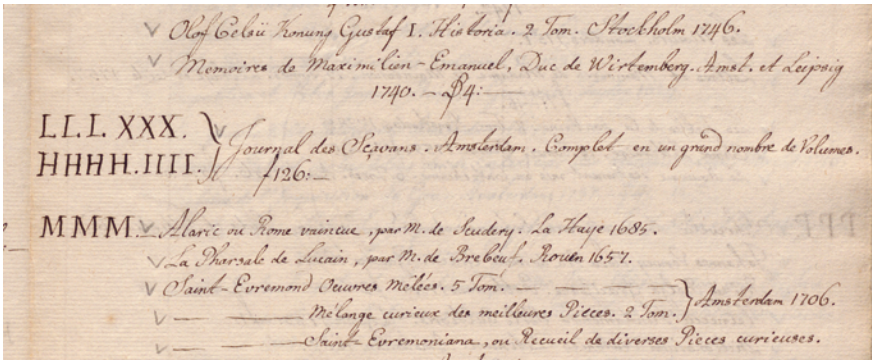 Olof Celsii Konung Gustaf I. Historia. 2 Tom. Stockholm 1746.
Memoires de Maximilien-Emanuel, Duc de Wirtemberg. Amst. et Leipsig
1740. — 4:—
LLL. XXX.
HHHH. IIII.
Journal des Sçavans. Amsterdam. Complet en un grand nombre de Volumes.
f126:—
MMM. — Alaric ou Rome vaincue, par M. de Scudery. La Haye 1685.
La Pharsale de Lucain, par M. de Brebeuf. Rouen 1657.
Saint-Evremond Oeuvres Mêlées. 5 Tom. — —
— — Mélange curieux des meilleures Pieces. 2 Tom. } Amsterdam 1706.
— — Saint-Evremoniana, ou Recueil de diverses Pieces curieuses.